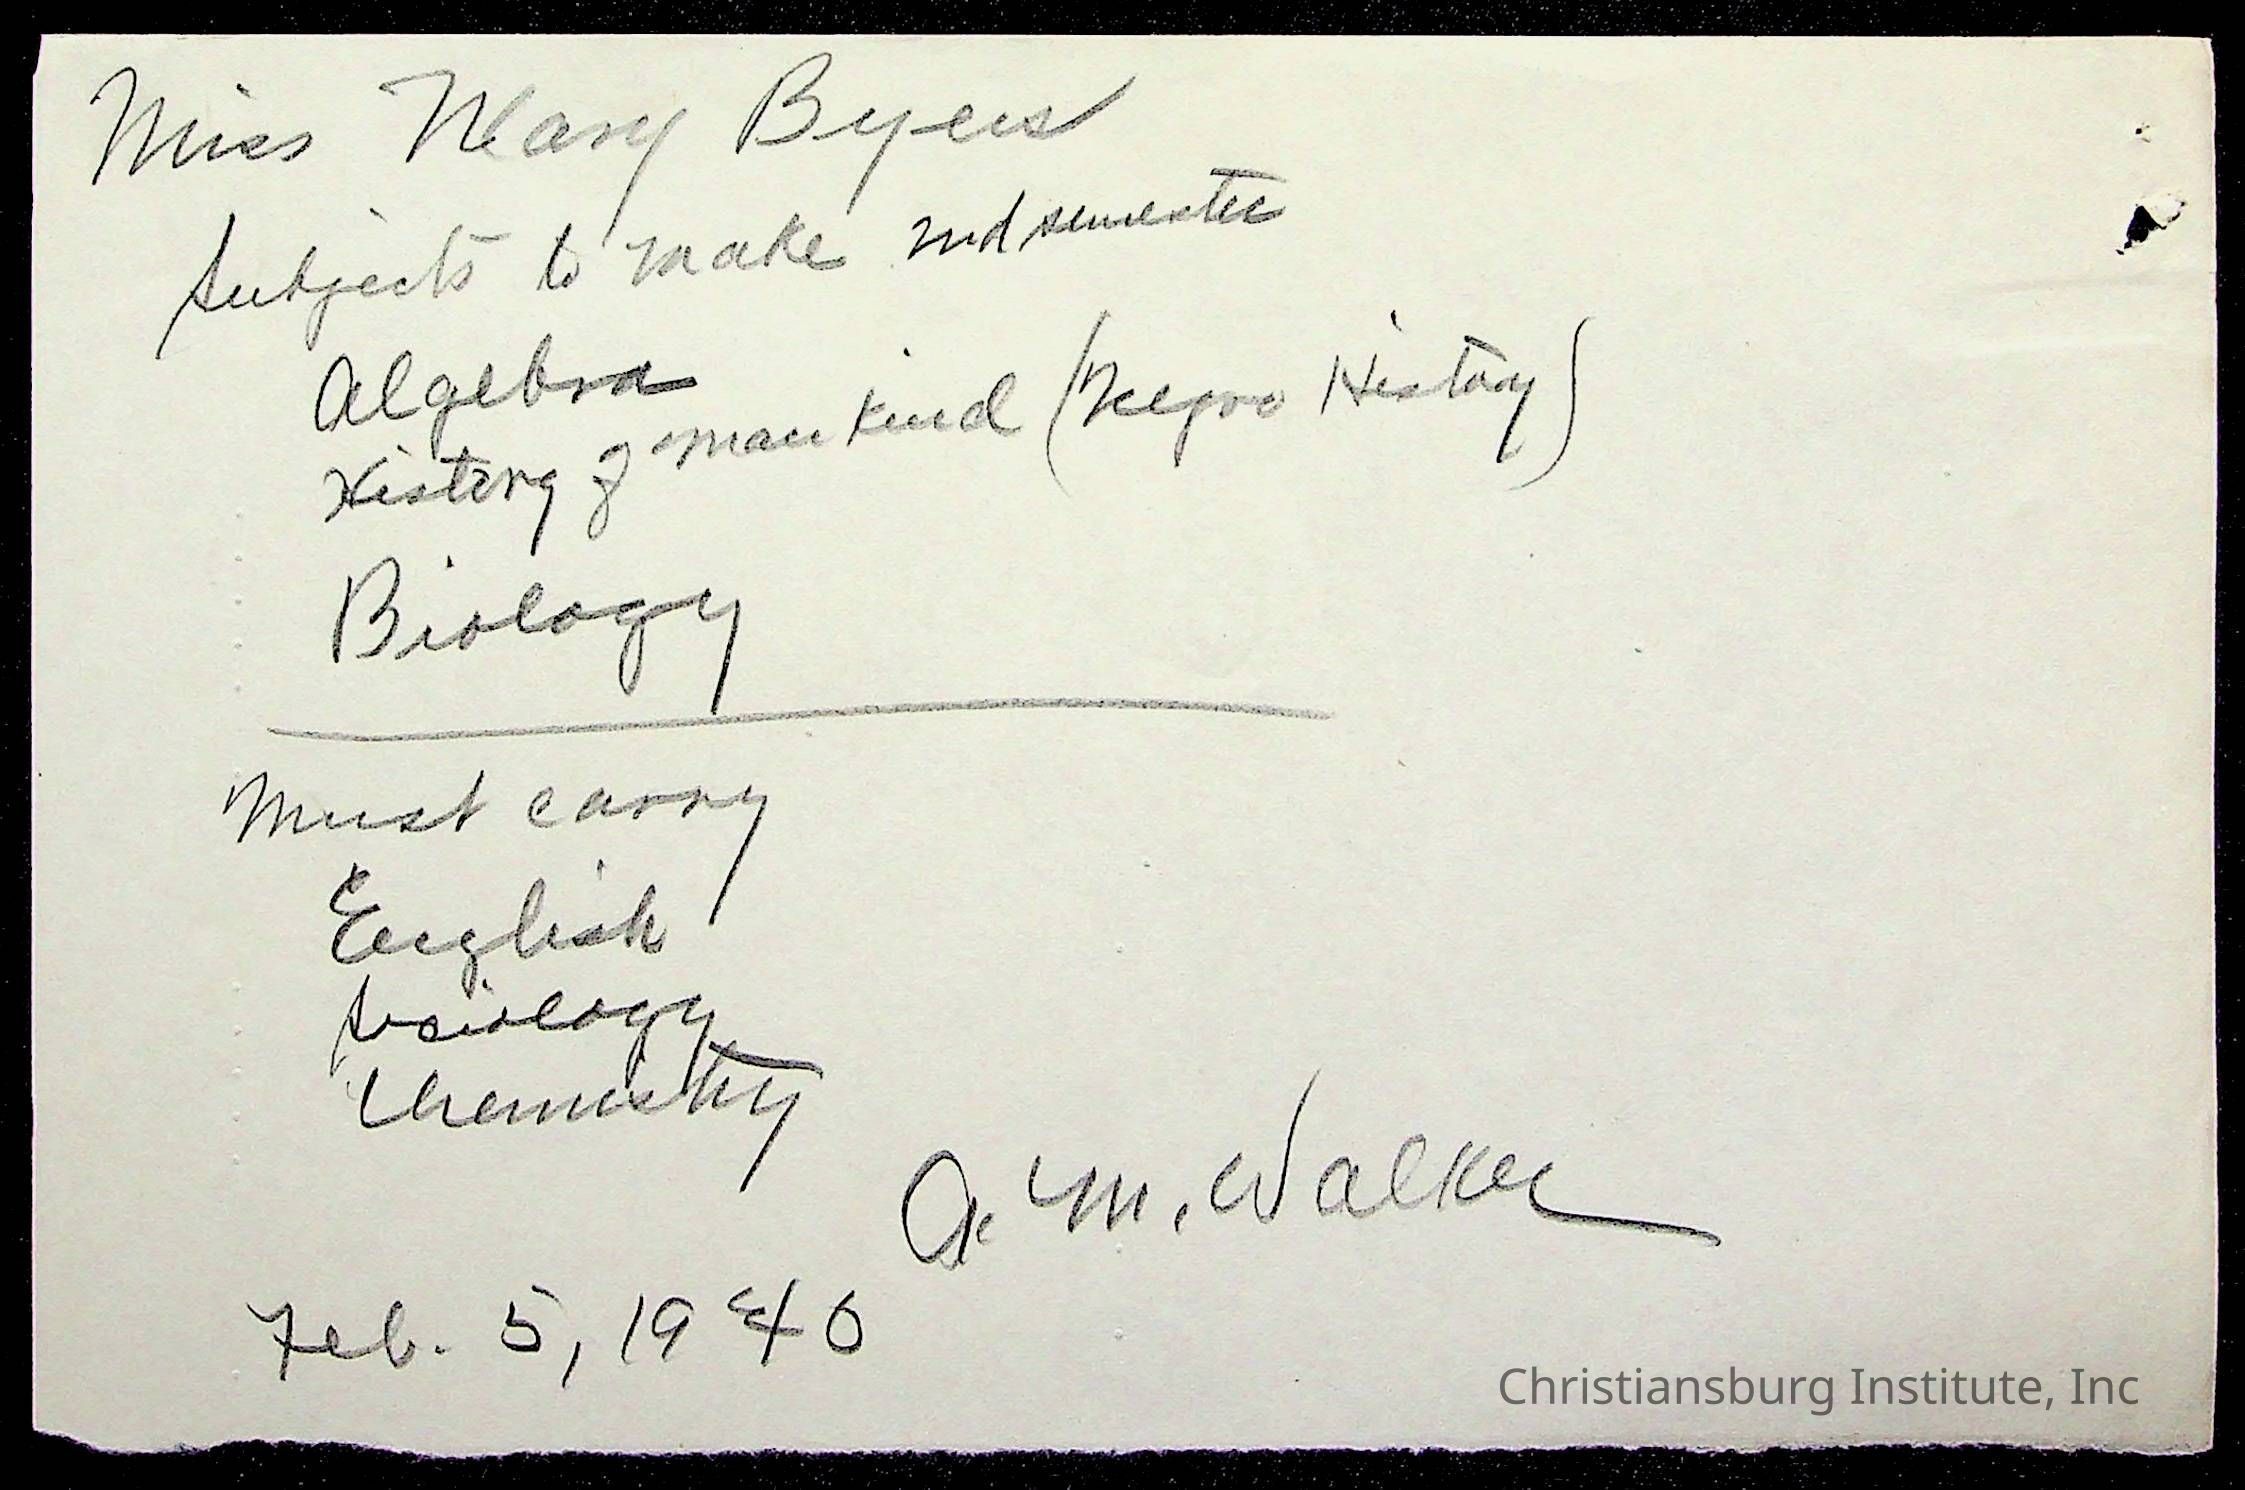 Miss Mary Byers
Subjects to make 2nd semester
Algebra
History of mankind (Negro History)
Biology
Must carry
English
Sociology
Chemistry
A. M. Walker
Feb. 5, 1940
Christiansburg Institute, Inc